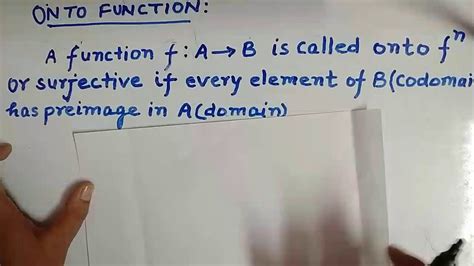 ONTO FUNCTION:
A function f: A→B is called onto fⁿ
or surjective if every element of B(codomai
has preimage in A(domain)